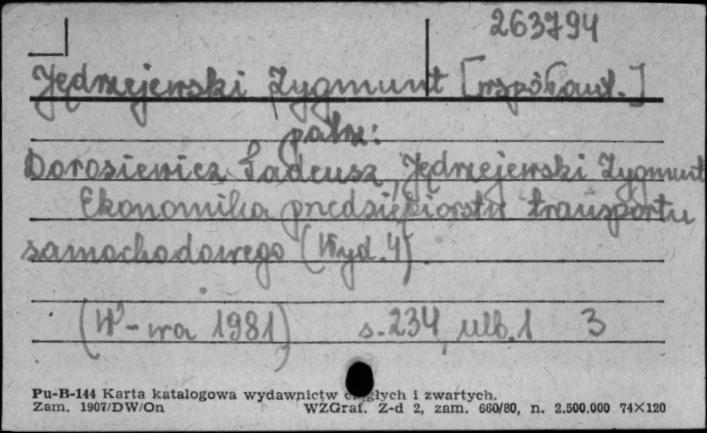 263794
Jędrzejewski Zygmunt [współaut.]
patrz:
Dorosiewicz Tadeusz, Jędrzejewski Zygmunt
Ekonomika przedsiębiorstw transportu
samochodowego (Wyd. 4)
(W-wa 1981) s. 234, nlb. 1 3
Pu-B-144 Karta katalogowa wydawnictw ciągłych i zwartych.
Zam. 1907/DW/On WZGraf. Z-d 2, zam. 660/80, n. 2.500.000 74×120